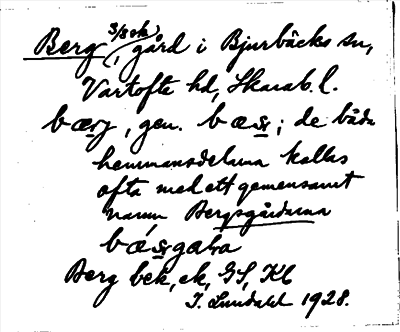 Berg 3/8 sk), gård i Bjurbäcks sn,
Vartofta hd, Skarab. l.
bærj, gen. bæs̨; de båda
hemmansdelarna kallas
ofta med ett gemensamt
namn Bergsgårdarna
bǽs̨gaɫa
Berg bek, ek, GS, Kb
I. Lundahl 1928.